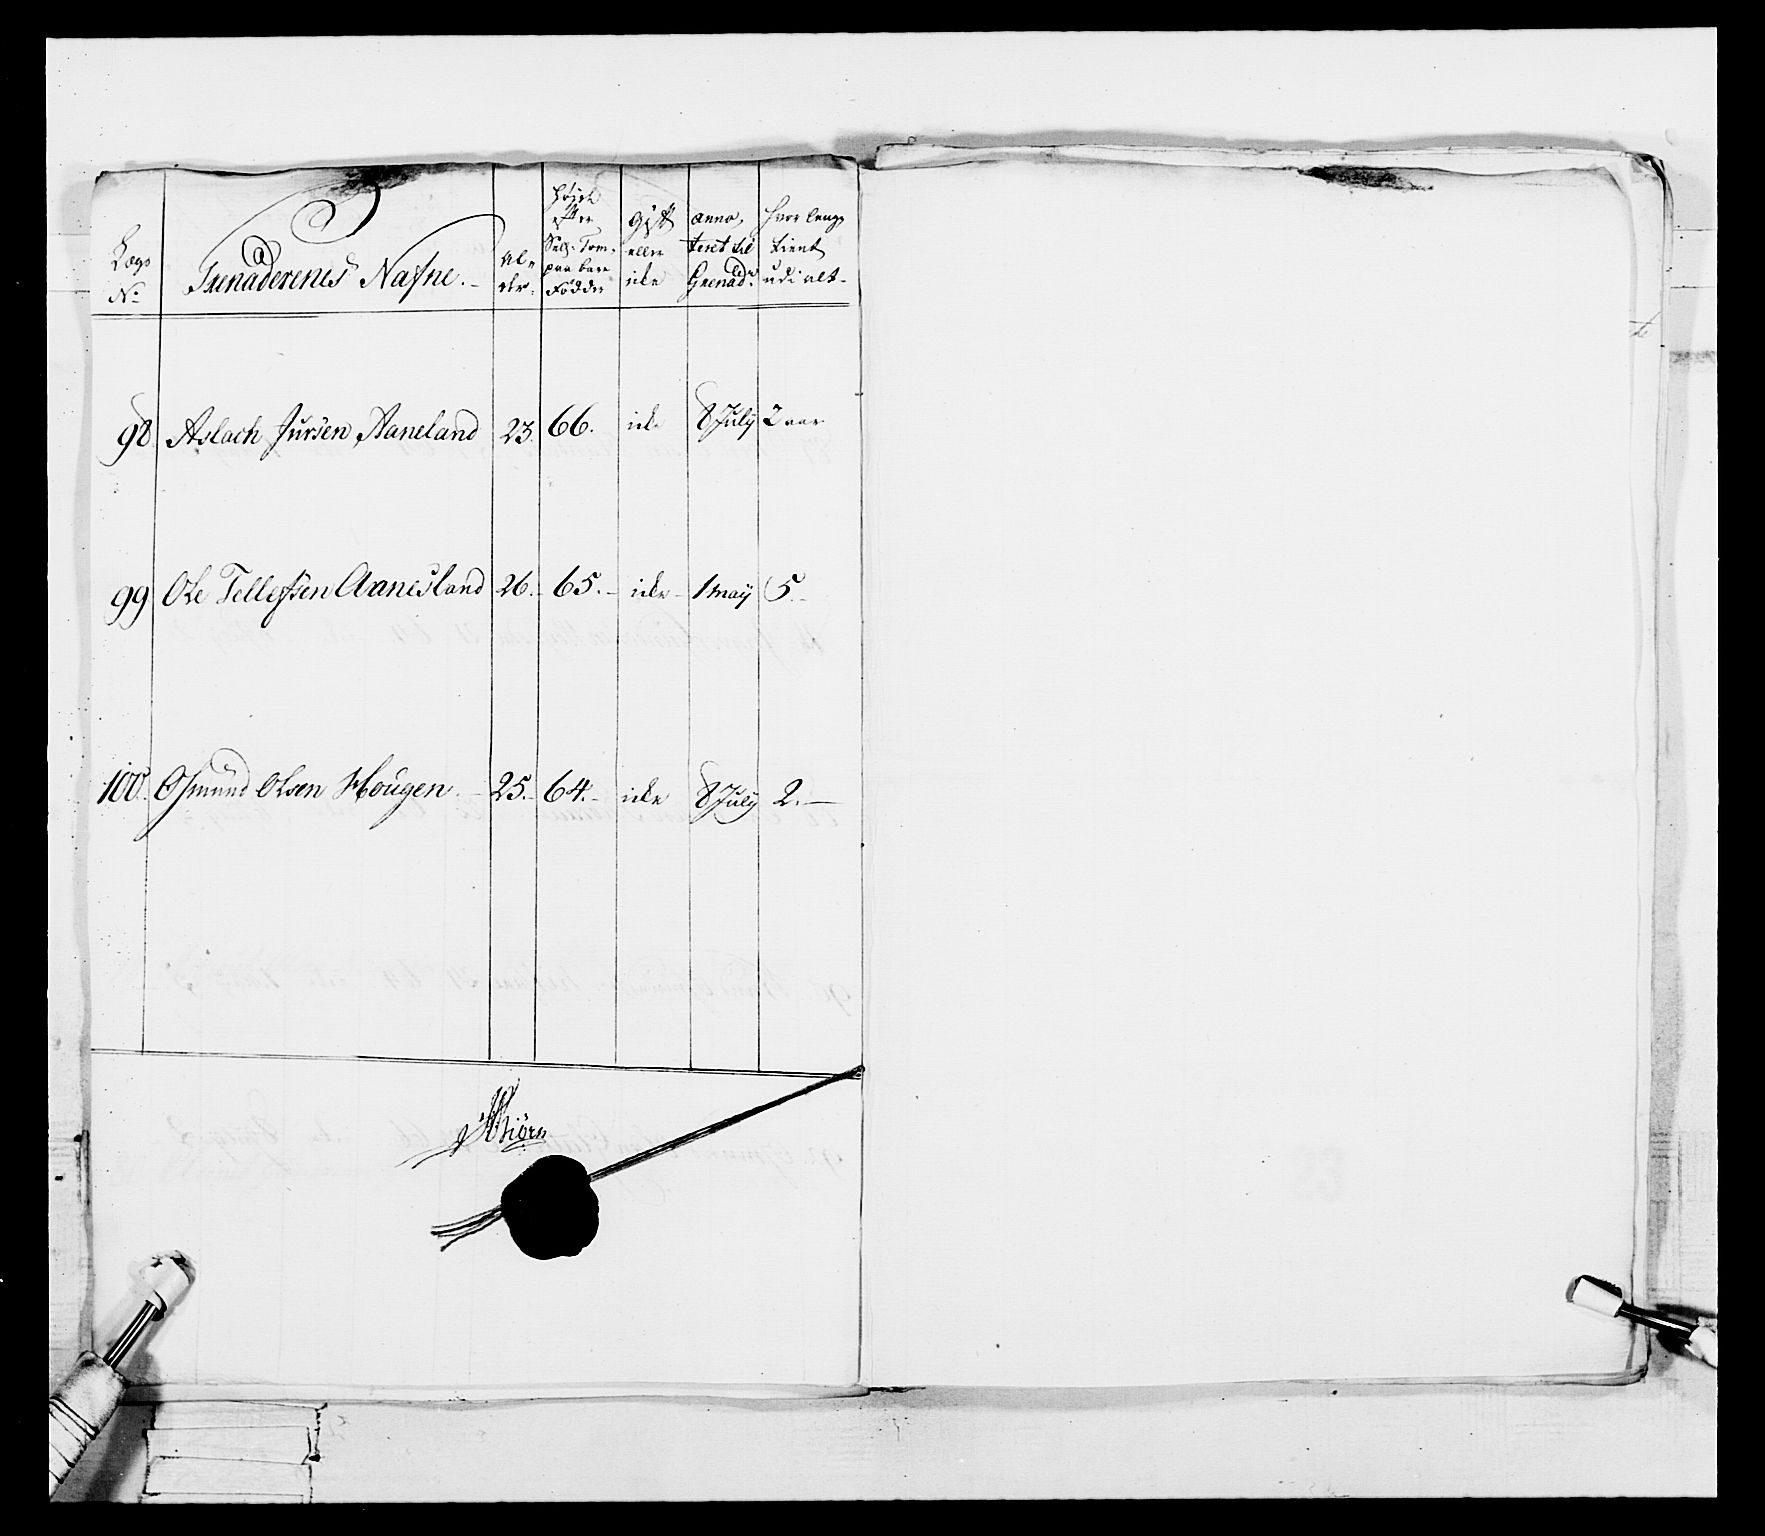 Lægs No Grenaderenes Nafne. Alder. Høyde efter Sælz: Tom. paa bare Fødder Gift eller icke anno, teret til Grenadr. hvor længe tient udi alt.
98. Aslach Jursen Aaneland 23. 66. icke 8 July 2 aar
99 Ole Tellefsen Aanesland 26. 65. icke 1 may 5.
100. Osmund Olsen Hougen. 25. 64. icke 8 July 2.